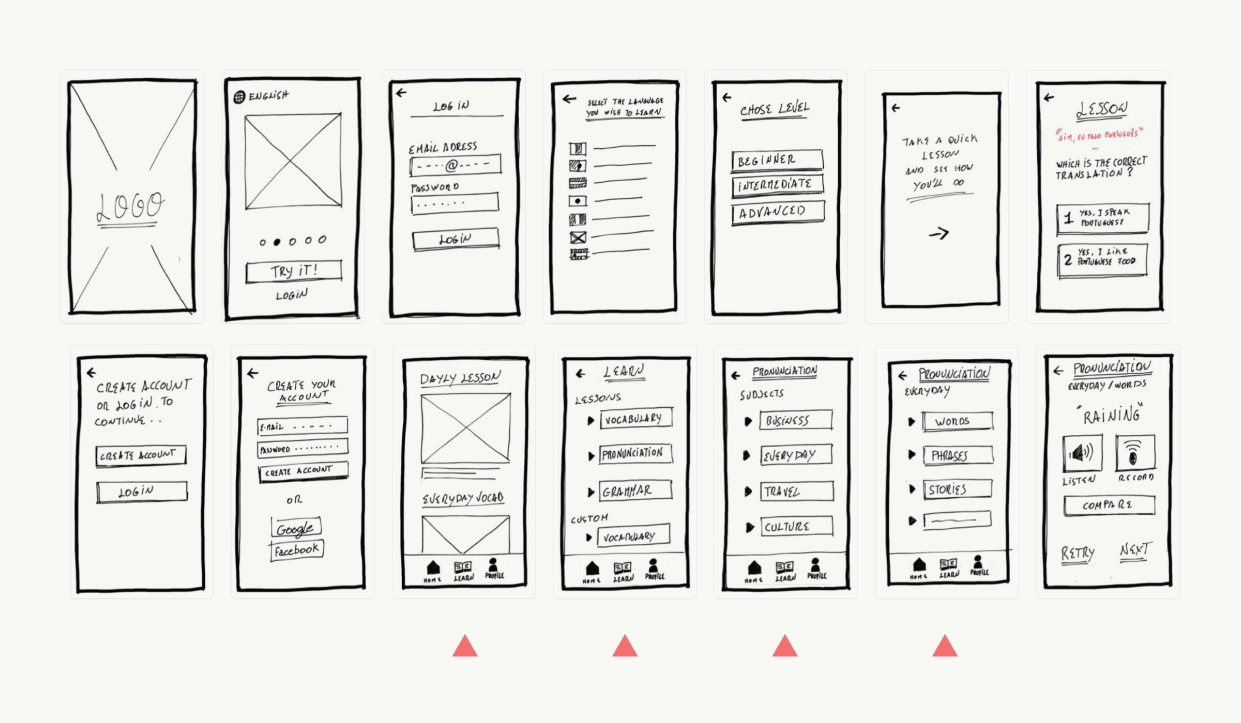 LOGO
ENGLISH
TRY IT!
LOGIN
LOG IN
EMAIL ADRESS
@
PASSWORD
LOGIN
SELECT THE LANGUAGE
YOU WISH TO LEARN
CHOSE LEVEL
BEGINNER
INTERMEDIATE
ADVANCED
TAKE A QUICK
LESSON
AND SEE HOW
YOU'LL DO
LESSON
"SIM, EU FALO PORTUGUÊS"
WHICH IS THE CORRECT
TRANSLATION?
1 YES, I SPEAK
PORTUGUESE
2 YES, I LIKE
PORTUGUESE FOOD
CREATE ACCOUNT
OR LOG IN TO
CONTINUE..
CREATE ACCOUNT
LOGIN
CREATE YOUR
ACCOUNT
E-MAIL
PASSWORD
CREATE ACCOUNT
OR
Google
Facebook
DAYLY LESSON
EVERYDAY VOCAB
HOME LEARN PROFILE
LEARN
LESSONS
VOCABULARY
PRONUNCIATION
GRAMMAR
CUSTOM
VOCABULARY
HOME LEARN PROFILE
PRONUNCIATION
SUBJECTS
BUSINESS
EVERYDAY
TRAVEL
CULTURE
HOME LEARN PROFILE
PRONUNCIATION
EVERYDAY
WORDS
PHRASES
STORIES
HOME LEARN PROFILE
PRONUNCIATION
EVERYDAY/WORDS
"RAINING"
LISTEN RECORD
COMPARE
RETRY NEXT